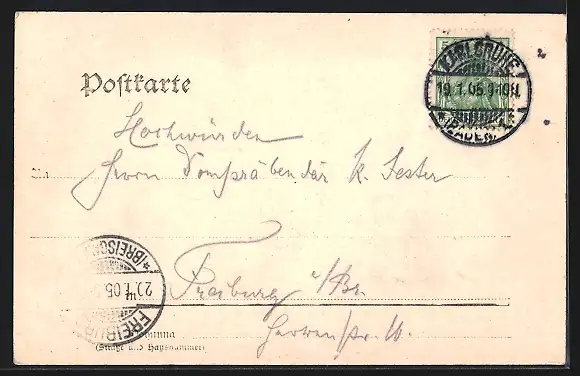 Postkarte
KARLSRUHE
19.1.05.9-10N.
(BADEN)
Hochwürden
Herrn Dompräbendar K. Fester
Freiburg i/Br.
Herrenstr. 16.
*(BREISGAU)*
20.1.05
FREIBURG
Wohnung
(Straße und Hausnummer)